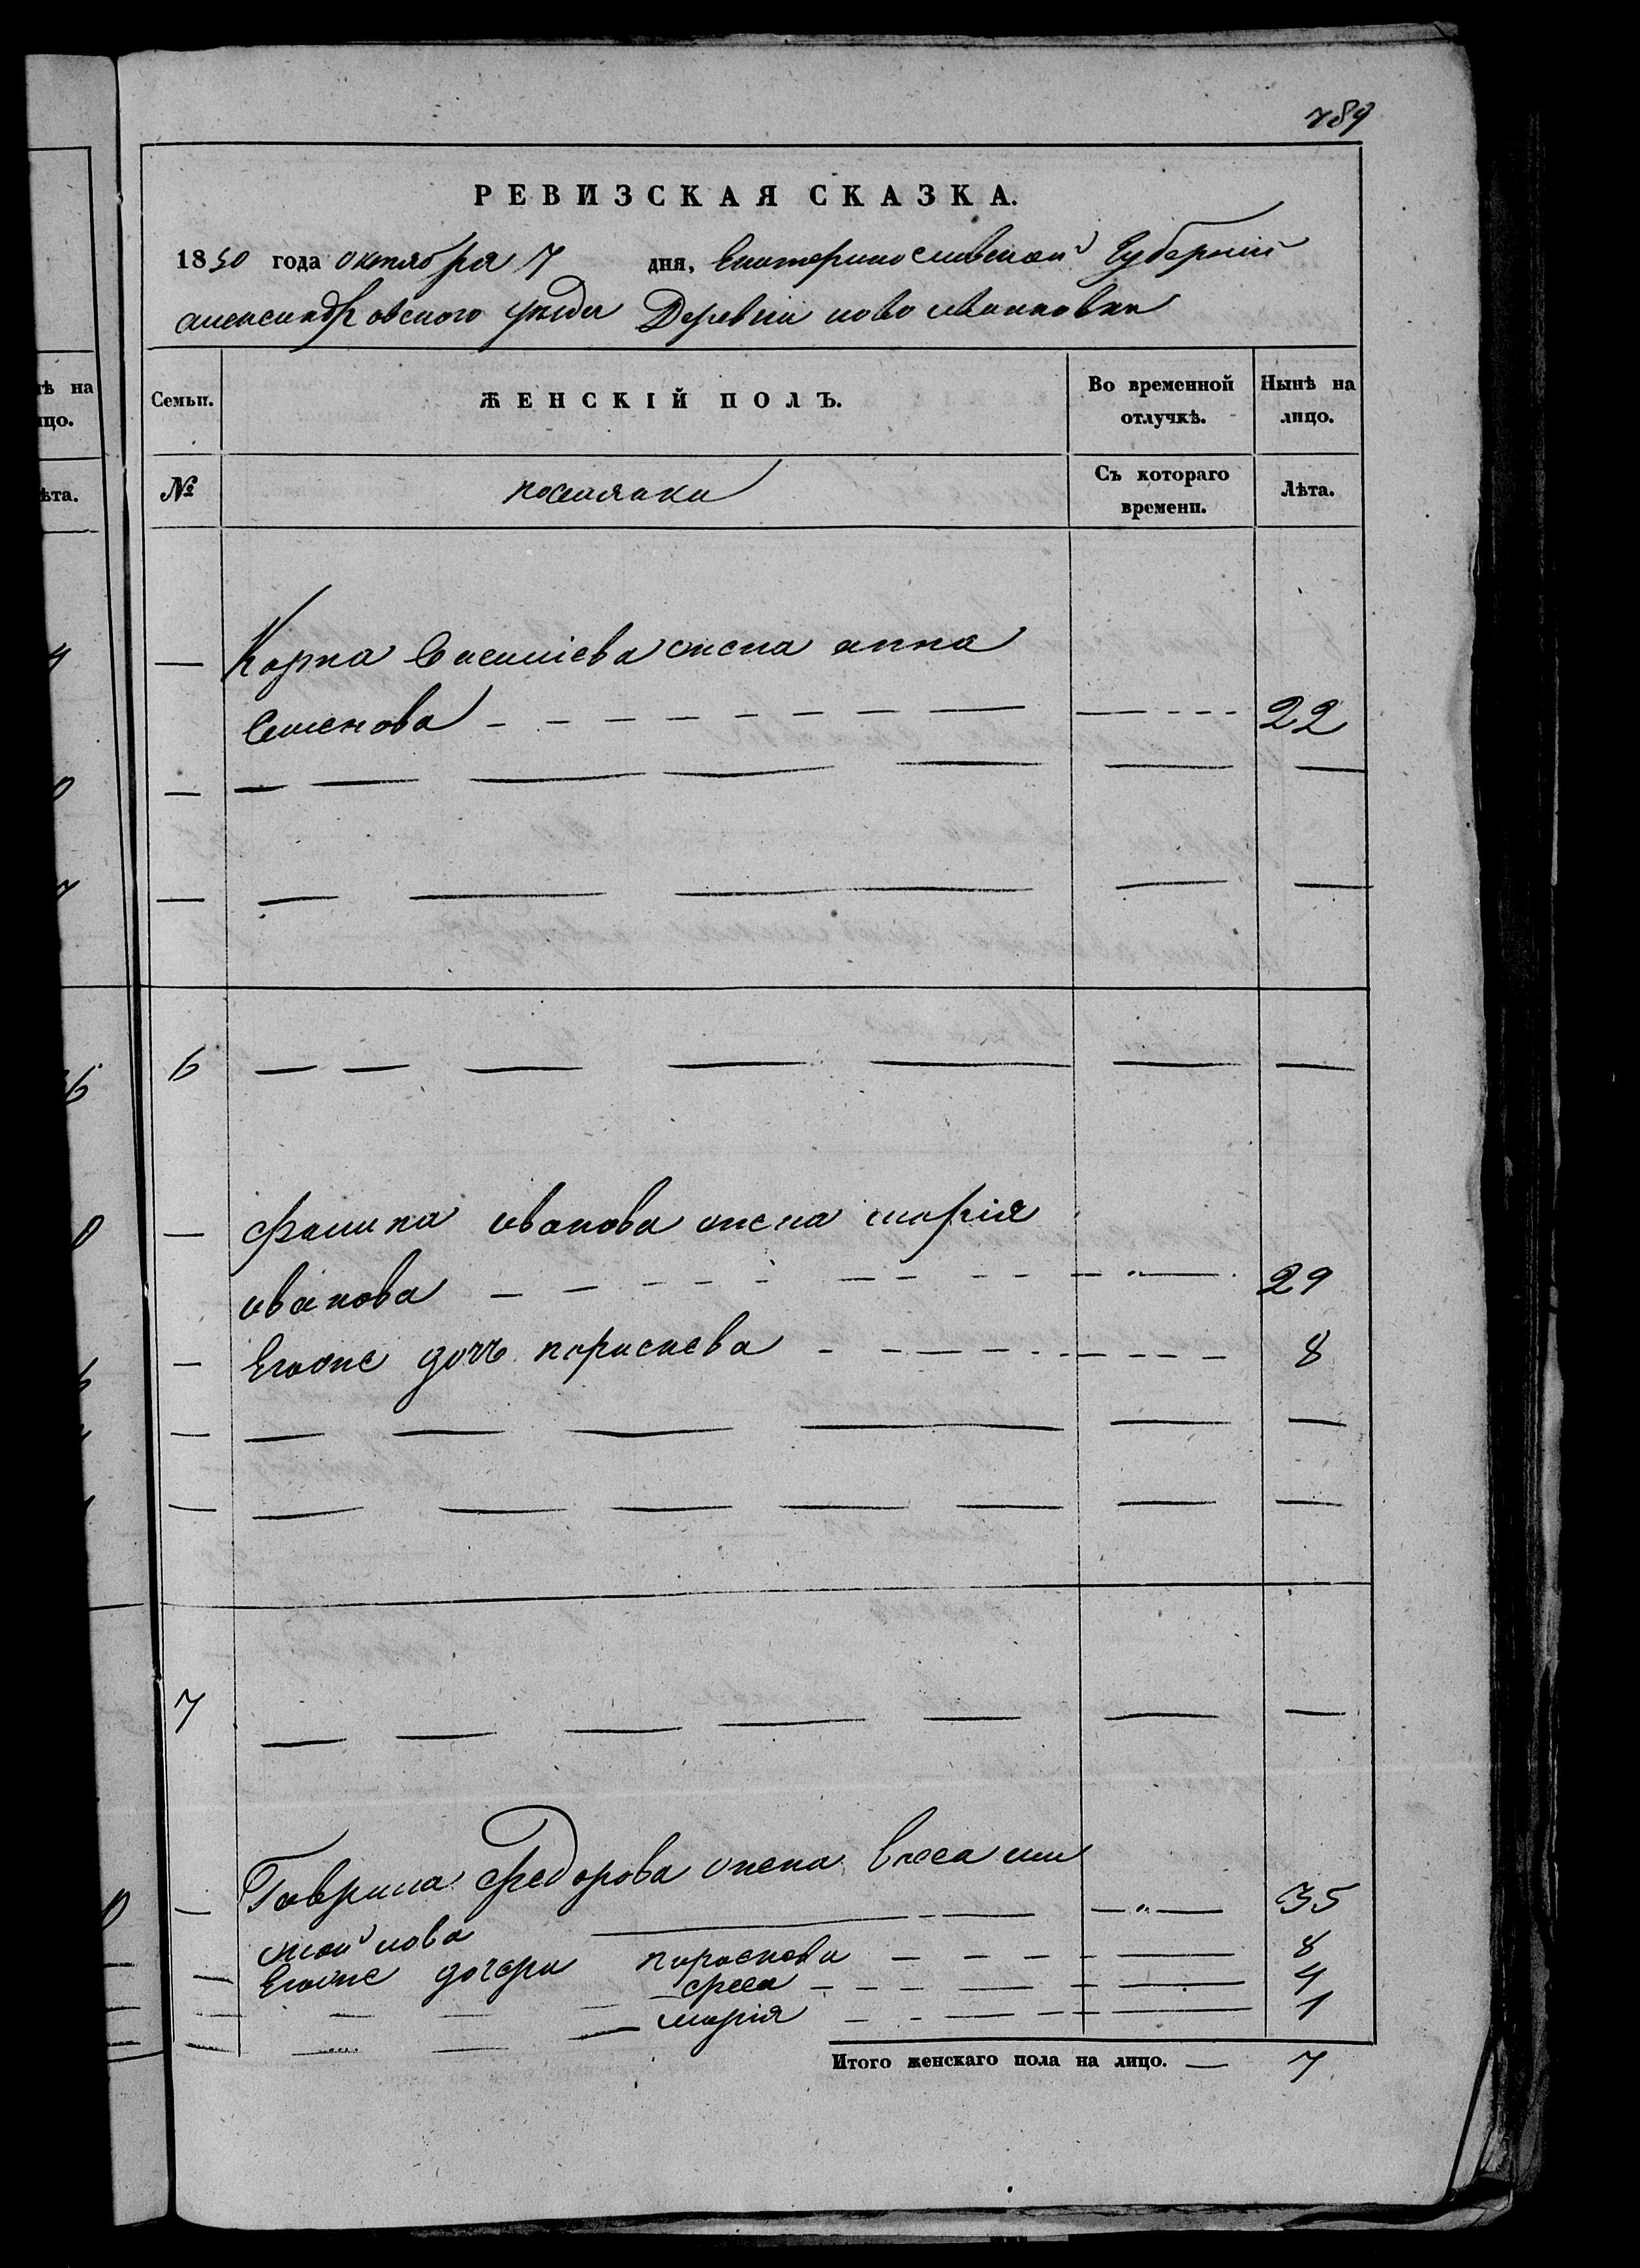 789
РЕВИЗСКАЯ СКАЗКА.
1850 года октября 7 дня, Екатеринославской Губерніи
александровского уезда Деревни ново ивановки
тѣ на
ицо.
Семьи.
ЖЕНСКІЙ ПОЛЪ.
Во временной отлучкѣ.
Нынѣ на лицо.
ѣта.
№
поселянки
Съ котораго времени.
Лѣта.
Карпа жена анна
Семенова 22
6
Фомина иванова жена марія
иванова 29
Егоже дочь параскева 8
7
Гаврила Федорова жена
35
Егоже дочери параскева 8
4
марія 1
Итого женскаго пола на лицо. 7